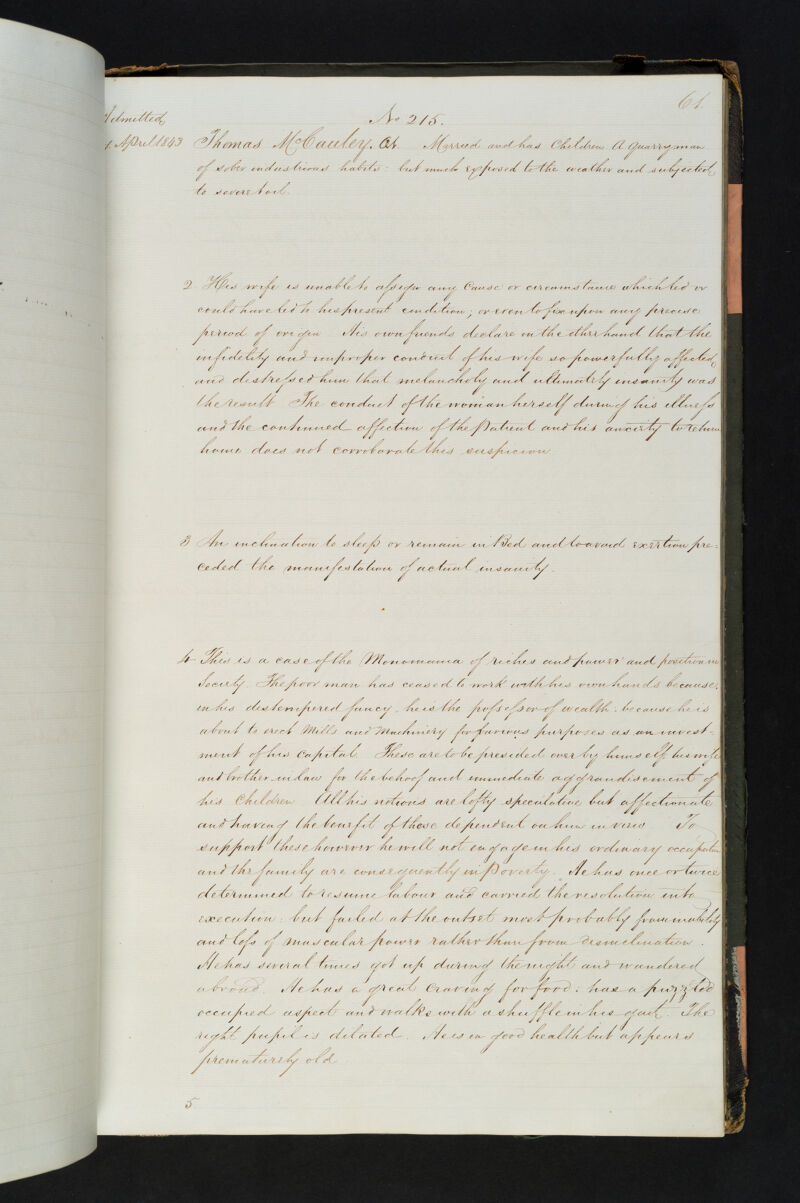 61.
Admitted
April 1843
No 215.
Thomas McCauley. Æt. Married and has Children. A quarryman
of sober industrious habits: but much exposed to the weather and subjected
to severe toil.
2 His wife is unable to assign any Cause or circumstance which led or
could have led to his present condition; or even to fix upon any precise
period of origin His own friends declare on the other hand that the
infidelity and improper conduct of his wife so powerfully affected
and distressed him that melancholy and ultimately insanity was
the result The conduct of the woman herself during his illness
and the continued affection of the Patient and his anxiety to return
home does not corroborate this suspicion
3 An inclination to sleep or remain in Bed and to avoid exertion pre=
ceded the manifestation of actual insanity.
4 This is a case of the Monomania of riches and power and position in
Society. The poor man has ceased to work with his own hands because,
in his distempered fancy, he is the possessor of wealth: because he is
about to erect Mills and Machinery for various purposes as an invest-
ment of his capital These are to be presided over by himself his wife
and brother in law for the behoof and immediate aggrandisement of
his Children All his notions are lofty speculative but affectionate
and having the benefit of those dependent on him in view To
support these however he will not engage in his ordinary occupation
and the family are consequently in Poverty. He has once or twice
determined to resume labour and carried the resolution into
execution: but failed at the outset most probably from inability
and loss of muscular power rather than from disinclination.
He has several times got up during the night and wandered
abroad. He has a great Craving for food: has a puzzled
occupied aspect and walks with a shuffle in his gait. The
right pupil is dilated. He is in good health but appears
prematurely old
5